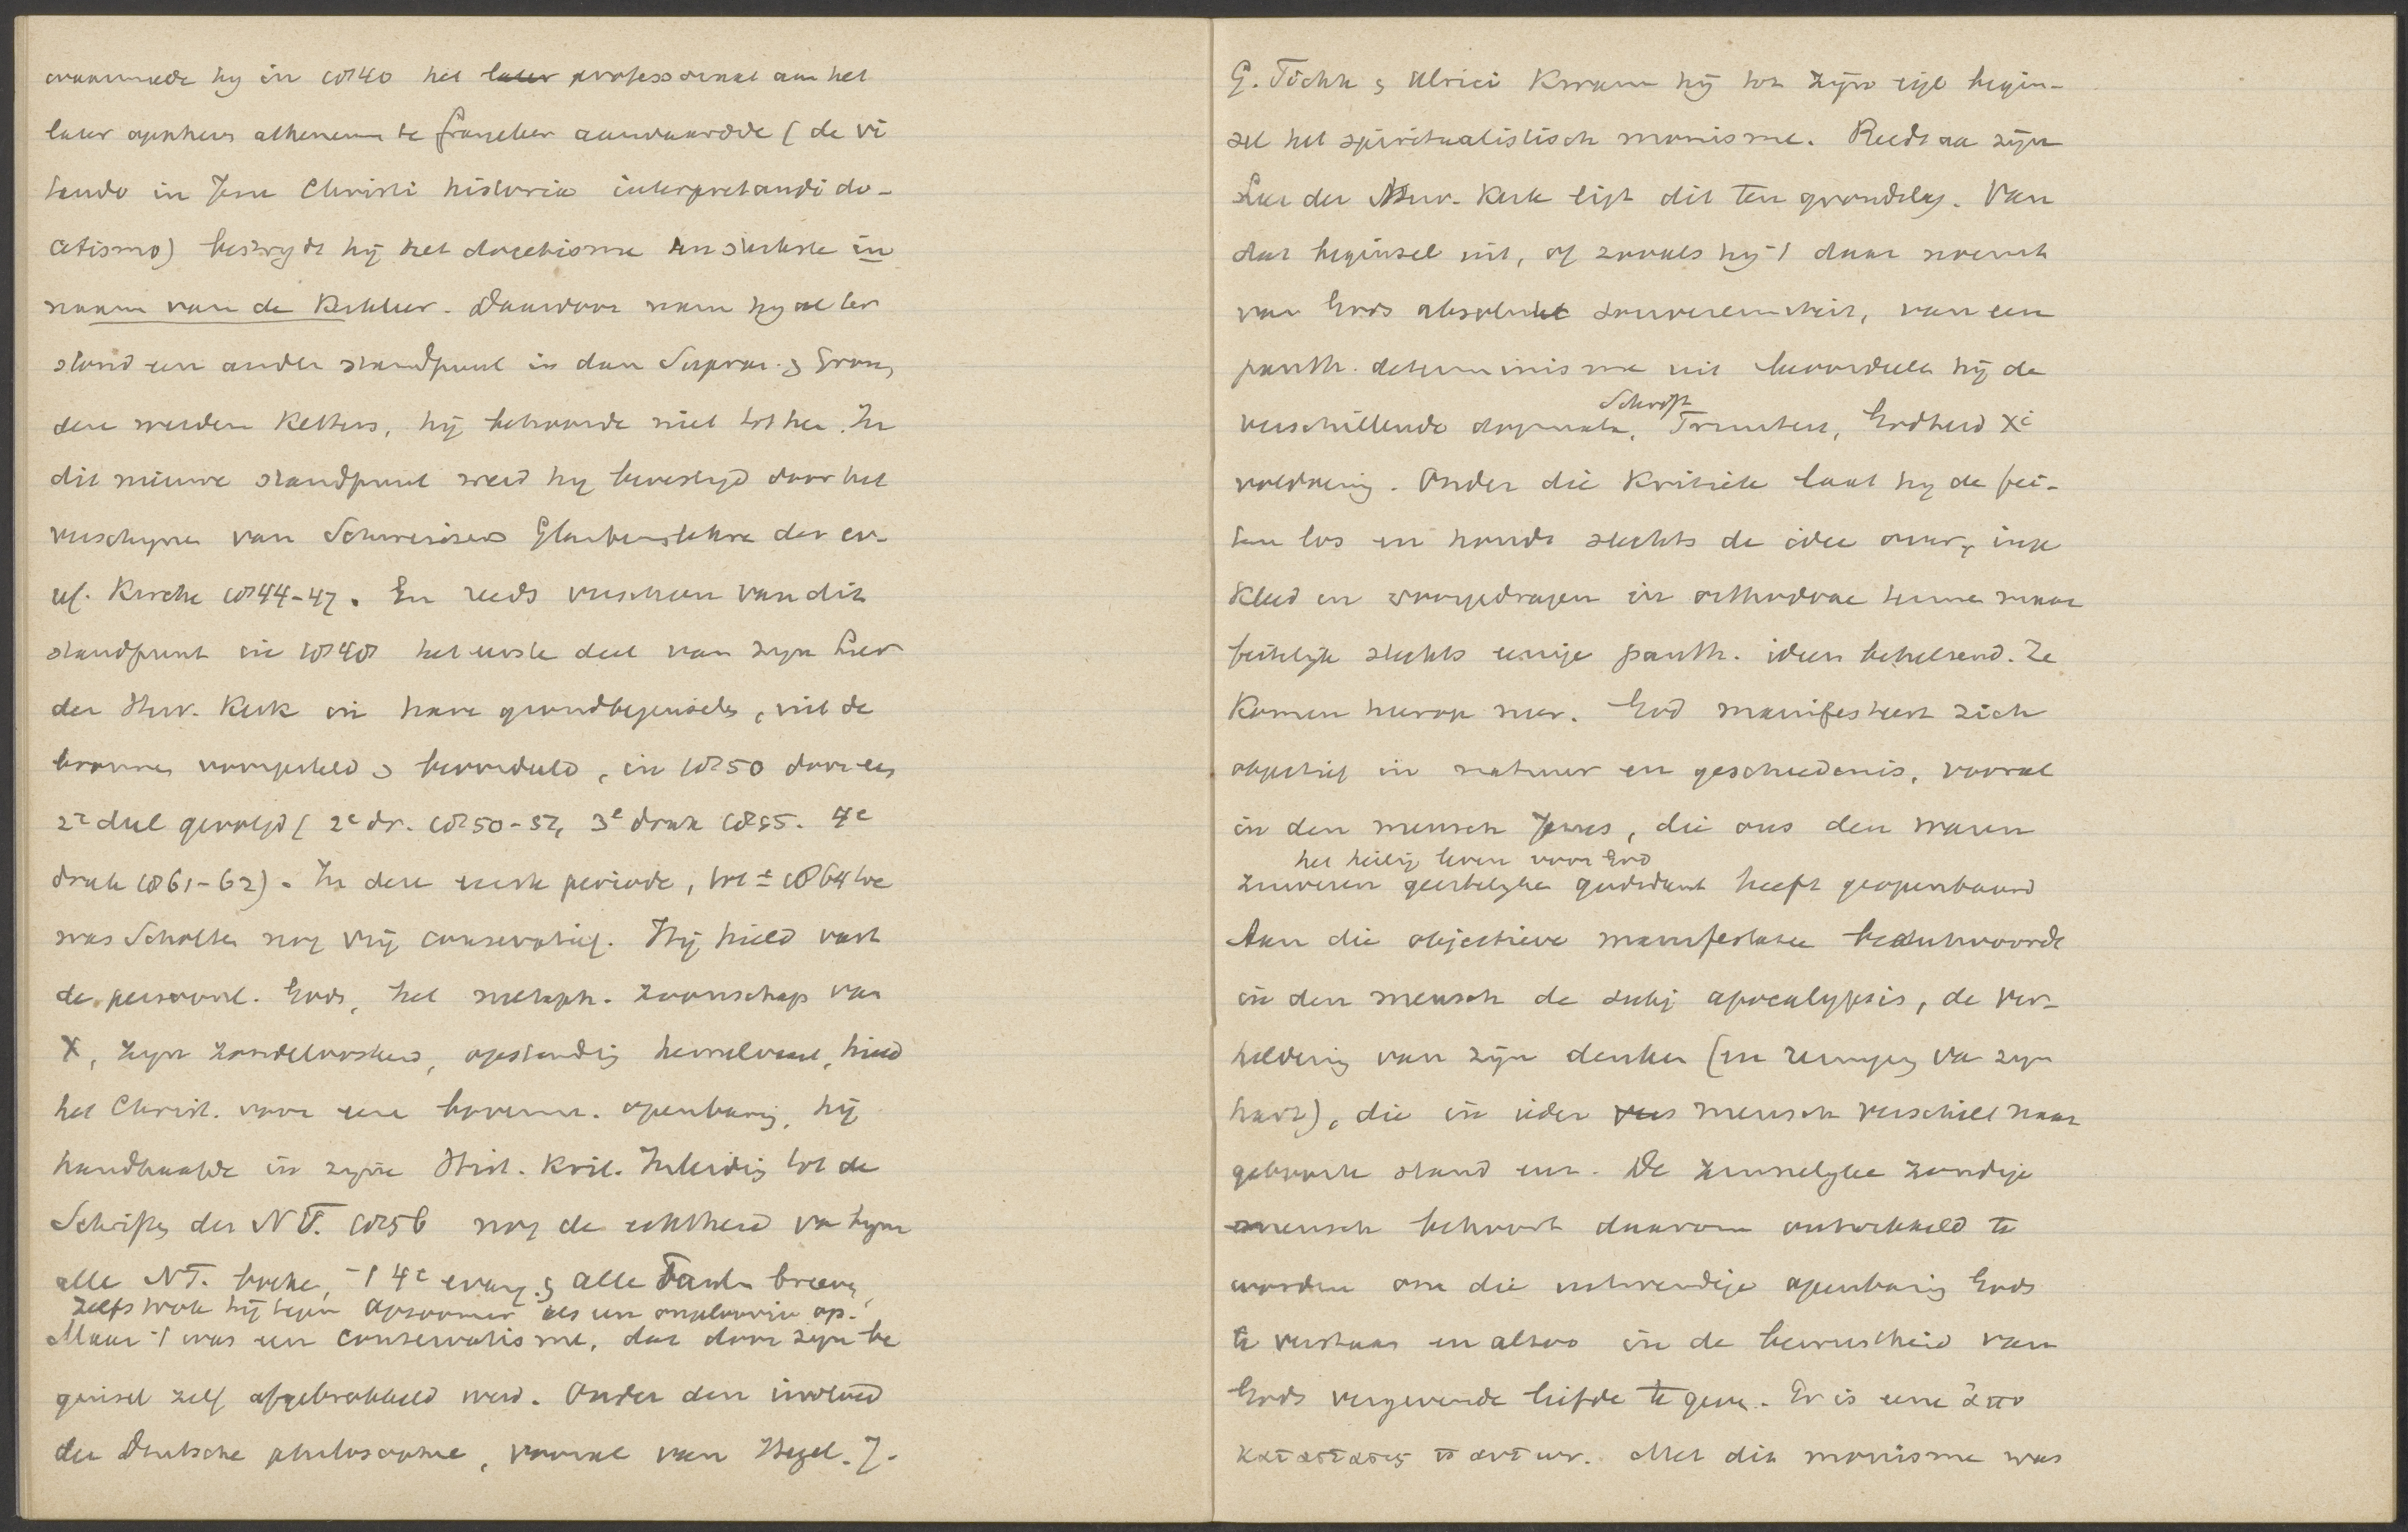 waarmede hy in 1840 het later professoraat aan het
later opgeheven atheneum te Franeker aanvaardde (de vi
tando in Jesu Christi historia interpretandi do-
cetismo) bestrydt hy het docetisme ten sterkste in
naam van de Kerkleer. Daardoor nam hy al ter
stond een ander standpunt in dan Supran. & Gron,
deze werden Ketters, hy behoorde niet tot hen. In
dit nieuwe standpunt werd hy bevestigd door het
verschynen van Schweizers Glaubenslehre der ev.
ref. Kirche 1844-47. En reeds verscheen van dit
standpunt in 1848 het eerste deel van zyn Leer
der Herv. Kerk in hare grondbeginselen, uit de
bronnen voorgesteld & beoordeeld, in 1850 door een
2e deel gevolgd (2e dr. 1850-51, 3e druk 1855. 4e
druk 1861-62). In deze eerste periode, tot ± 1864 toe
was Scholten nog vrij conservatief. Hij hield vast
de persoonl. Gods, het metaph. Zoonschap van
X, zyn zondeloosheid, opstanding hemelvaart, hield
het Christ. voor eene bovenn. openbaring, hij
handhaafde in zyne Hist. Krit. Inleiding tot de
Schriften des N T. 1856 nog de echtheid van byna
alle NT. boeken, 't 4e evang. & alle Paulin brieven,
zelfs trok hij tegen Opzoomer als een ongeloovige op.
Maar 't was een conservatisme, dat door zyn be
ginsel zelf afgebrokkeld werd. Onder den invloed
der Duitsche philosophie, vooral van Hegel. J.
G. Fichte & Ulrici kwam hij tot zijn eigl begin-
sel het spiritualistisch monisme. Reeds aan zijn
Leer der Herv. Kerk ligt dit ten grondslag. Van
dat beginsel uit, of zooals hij 't daar noemt
van Gods absolute souvereiniteit, van een
panth. determinisme uit beoordeelt hij de
verschillende dogmata, Schrift Triniteit, Godheid Xi
voldoening. Onder die Kritiek laat hy de fei-
ten los en houdt slechts de idee over, inge
kleed en voorgedragen in orthodoxe termen maar
feitelyk slechts eenige panth. ideen behelsend. Ze
komen hierop neer. God manifesteert zich
objectief in natuur en geschiedenis, vooral
in den mensch Jezus, die ons den waren
het heilig leven voor God
zuiveren geestelyken godsdienst heeft geopenbaard
Aan die objectieve manifestatie beantwoordt
in den mensch de subj apocalypsis, de ver-
heldering van zijn denken (en reiniging van zyn
hart), die in ieder mensch verschilt naar
geboorte stand enz. De zinnelyke zondige
mensch behoort daarom ontwikkeld te
worden om die uitwendige openbaring Gods
te verstaan en alzoo in de bewustheid van
Gods vergevende liefde te geven. Er is eene ἀπο
καταστασις παντων. Met dit monisme was